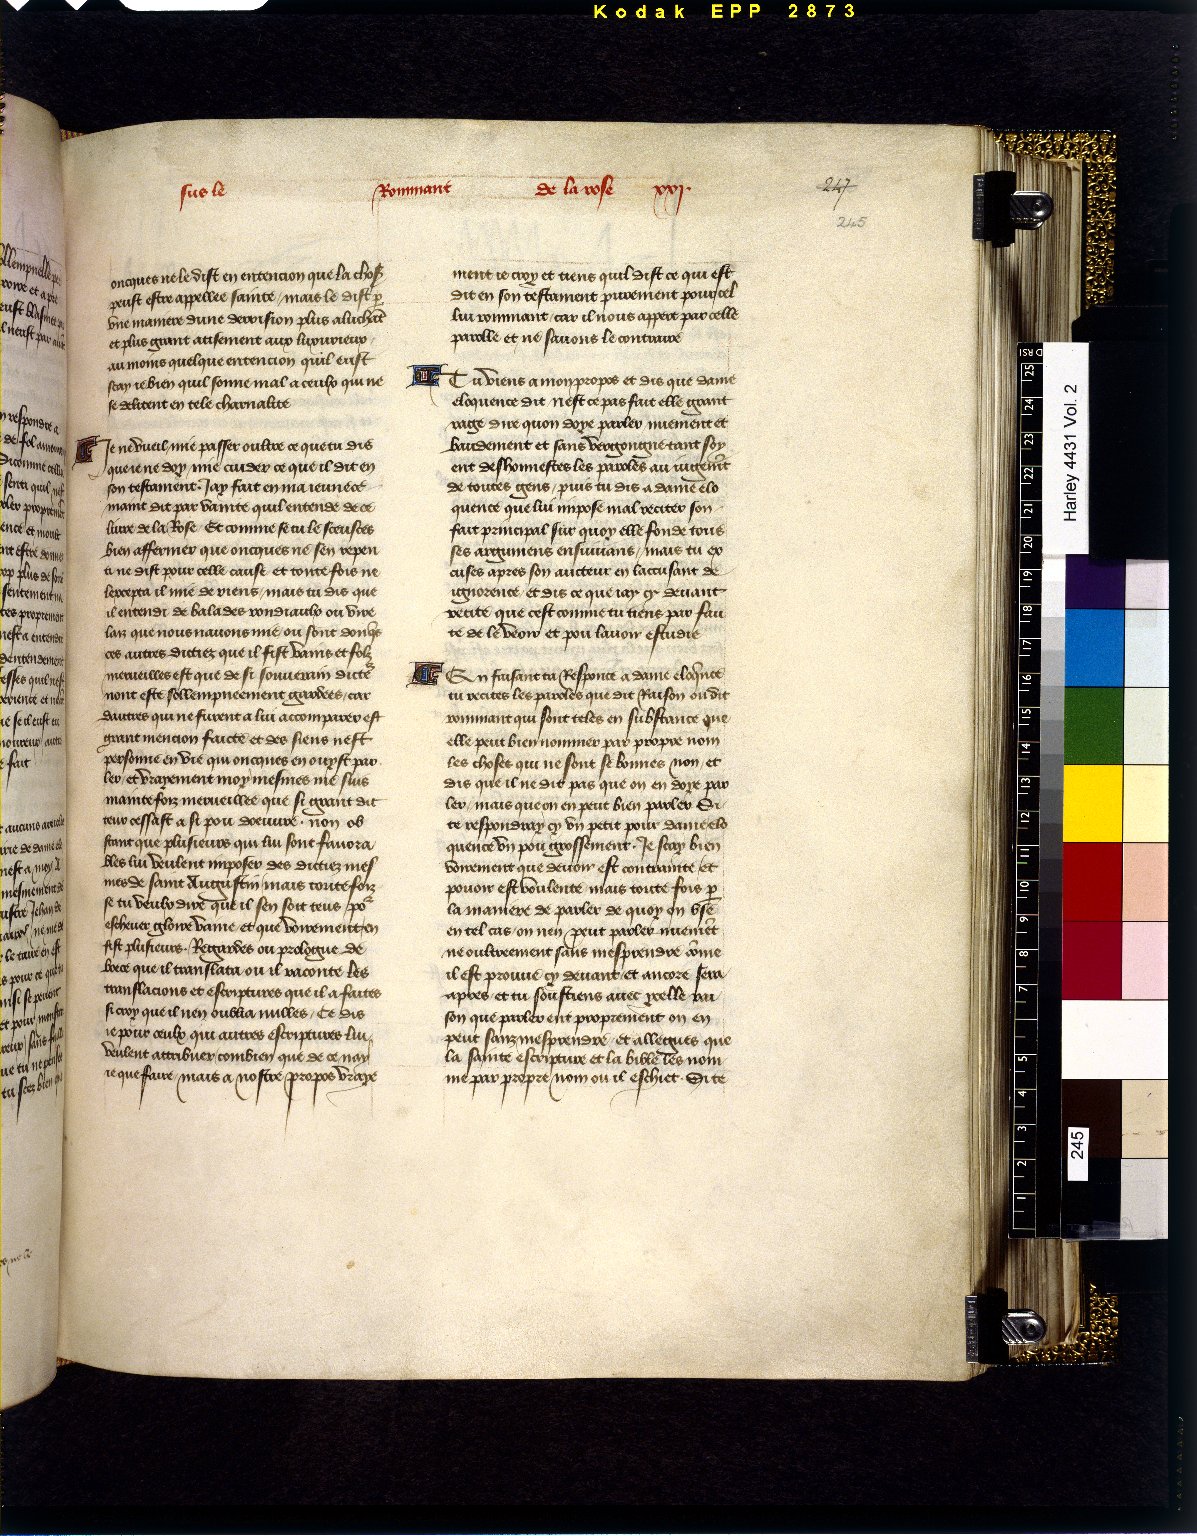 Kodak EPP 2873
sus le Rommant de la rose xxj.
247
245
oncques ne le dist en entencion que la chose
peust estre appellee sainte / mais le dist p
une maniere dune derrision plus aluchãt
et plus grant atisement aux luxurieux /
au moins quelque entencion quil eust
scay ie bien quil sonne mal a ceulx qui ne
se delitent en tele charnalite
Je ne vueil mie passer oultre ce que tu dis
que ie ne doy mie cuider ce que il dit en
son testament. Jay fait en ma ieunece
maint dit par vanite quil entende de ce
livre de la Rose / Et comme se tu le sceusses
bien affermer que oncques ne sen repen
ti ne dist pour celle cause / et toute fois ne
lexcepta il mie de riens / mais tu dis que
il entendi de balades rondiaulx ou vire
laiz que nous navons mie / ou sont donqs
ces autres dictiez que il fist vains et folz
merveilles est que de si souverain dicte
nont este sollempneement gardees / car
dautres qui ne furent a lui accomparer est
grant mencion faicte et des siens nest
personne en vie qui oncques en ouyst par
ler / et vrayement moy mesmes me suis
mainte foiz merveillee que si grant dit
teur cessast a si pou doeuvre / non ob
stant que plusieurs qui lui sont favora
bles lui veulent imposer des dictiez mes
mes de saint Augustin mais toute foiz
se tu veulx dire que il sen soit teus / po
eschever gloire vaine / et que voirement en
fist plusieurs. Regardes ou prologue de
boece que il translata ou il raconte les
translacions et escriptures que il a faites
si croy que il nen oublia nulles / Ce dis
ie pour ceulx qui autres escriptures lui
veulent attribuer combien que de ce nay
ie que faire / mais a nostre propos vraye
ment ie croy et tiens quil dist ce qui est
dit en son testament purement pour cel
lui rommant / car il nous appert par celle
parolle et ne savons le contraire
Tu viens a mon propos et dis que dame
eloquence dit / nest ce pas fait elle grant
rage dire quon doye parler nuement et
baudement et sans vergongne tant soy
ent deshonnestes les paroles au iugemt
de toutes gens / puis tu dis a dame elo
quence que lui impose mal reciter son
fait principal sur quoy elle fonde tous
ses argumens ensuivans / mais tu ex
cuses apres son aucteur en laccusant de
ignorence / et dis ce que iay cy devant
recite que cest comme tu tiens par fau
te de le veoir et pou lavoir estudie
En faisant ta Responce a dame eloqnce
tu recites les paroles que dit Raison ou dit
rommant qui sont teles en substance que
elle peut bien nommer par propre nom
les choses qui ne sont se bonnes non / et
dis que il ne dit pas que on en doye par
ler / mais que on en peut bien parler Si
te respondray cy un petit pour dame elo
quence un pou grossement. Je scay bien
voirement que devoir est contrainte et
pouoir est voulente mais toute fois p
la maniere de parler de quoy on use
en tel cas / on nen peut parler nuemẽt
ne oultreement sans mesprendre cõme
il est prouve cy devant et ancore sera
apres / et tu soustiens avec ycelle rai
son que parler ent proprement on en
peut sanz mesprendre / et allegues que
la sainte escripture et la bible les nom
me par propre nom ou il eschiet. Si te
Harley 4431 Vol. 2
245